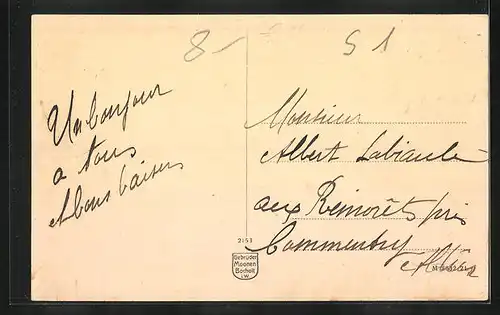 8-
S 1
Un bonjour
a tous
et bons baisers
Monsieur
Albert
aux Remorêts près
Commentry
Allier
2153
Gebrüder
Moonen
Bocholt
i.W.